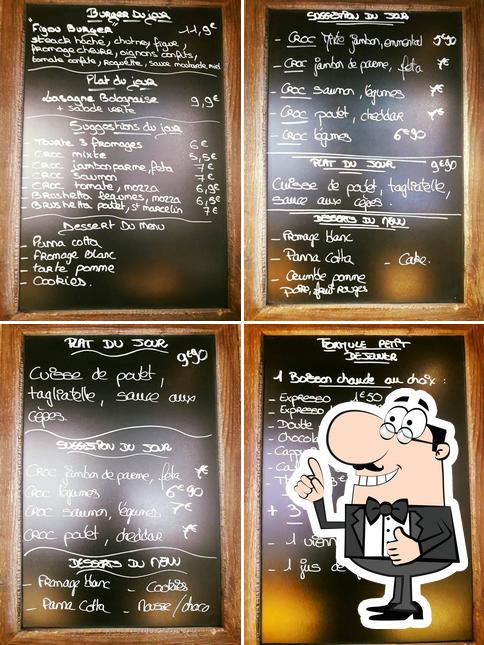 BURGER DU JOUR
"Figou BURGER" 11,9€
steack haché, chutney figue,
fromage chèvre, oignons confits,
tomate confite, Roquette, sauce moutarde miel
Plat du jour
Lasagne Bolognaise 9,9€
+ salade verte
Suggestions du jour
- Tourte 3 fromages 6€
- CROC mixte 5,5€
- CROC jambon parme, feta 7€
- CROC saumon 7€
- CROC tomate, mozza 6,9€
- Brushetta légumes, mozza 6,9€
- Brushetta poulet, st marcelin 7€
Dessert Du menu
- Panna cotta
- fromage blanc
- tarte pomme
- Cookies.
SUGGESTION DU JOUR
- CROC jambon, emmental 5€90
- CROC jambon de parme, feta 7€
- CROC saumon, légumes 7€
- CROC poulet, cheddar 7€
- CROC légumes 6€90
PLAT DU JOUR 9€90
Cuisse de poulet, tagliatelle,
sauce aux cèpes.
DESSERTS DU MENU
- Fromage blanc
- Panna Cotta - Cake.
- Crumble pomme
poire, fruit rouges
PLAT DU JOUR
9€90
Cuisse de poulet,
tagliatelle, sauce aux
cèpes.
SUGGESTION DU JOUR
CROC jambon de parme, feta 7€
CROC légumes 6€90
CROC saumon, légumes 7€
CROC poulet, cheddar 7€
DESSERTS DU MENU
- Fromage blanc - Cookies
- Panna Cotta - Mousse/choco
FORMULE PETIT
DEJEUNER
1 Boisson chaude au choix :
- Expresso 1€50
- Expresso
- Double
- Chocola
- Capp
+ 3
- 1 vienn
- 1 jus de